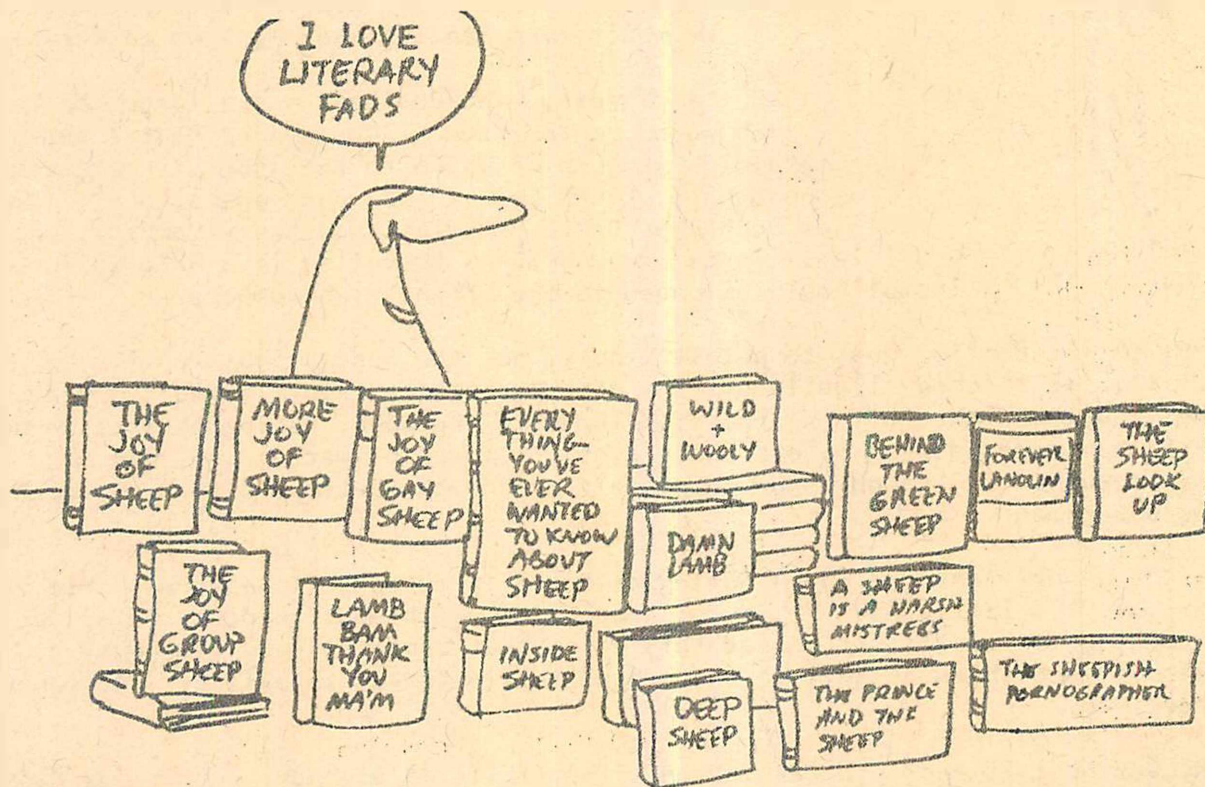 I LOVE
LITERARY
FADS
THE
JOY
OF
SHEEP
MORE
JOY
OF
SHEEP
THE
JOY
OF
GAY
SHEEP
EVERY
THING
YOU'VE
EVER
WANTED
TO KNOW
ABOUT
SHEEP
WILD
+
WOOLY
DAMN
LAMB
BEHIND
THE
GREEN
SHEEP
FOREVER
LANOLIN
THE
SHEEP
LOOK
UP
THE
JOY
OF
GROUP
SHEEP
LAMB
BAM
THANK
YOU
MA'M
INSIDE
SHEEP
DEEP
SHEEP
A SHEEP
IS A HARSH
MISTRESS
THE PRINCE
AND THE
SHEEP
THE SHEEPISH
PORNOGRAPHER